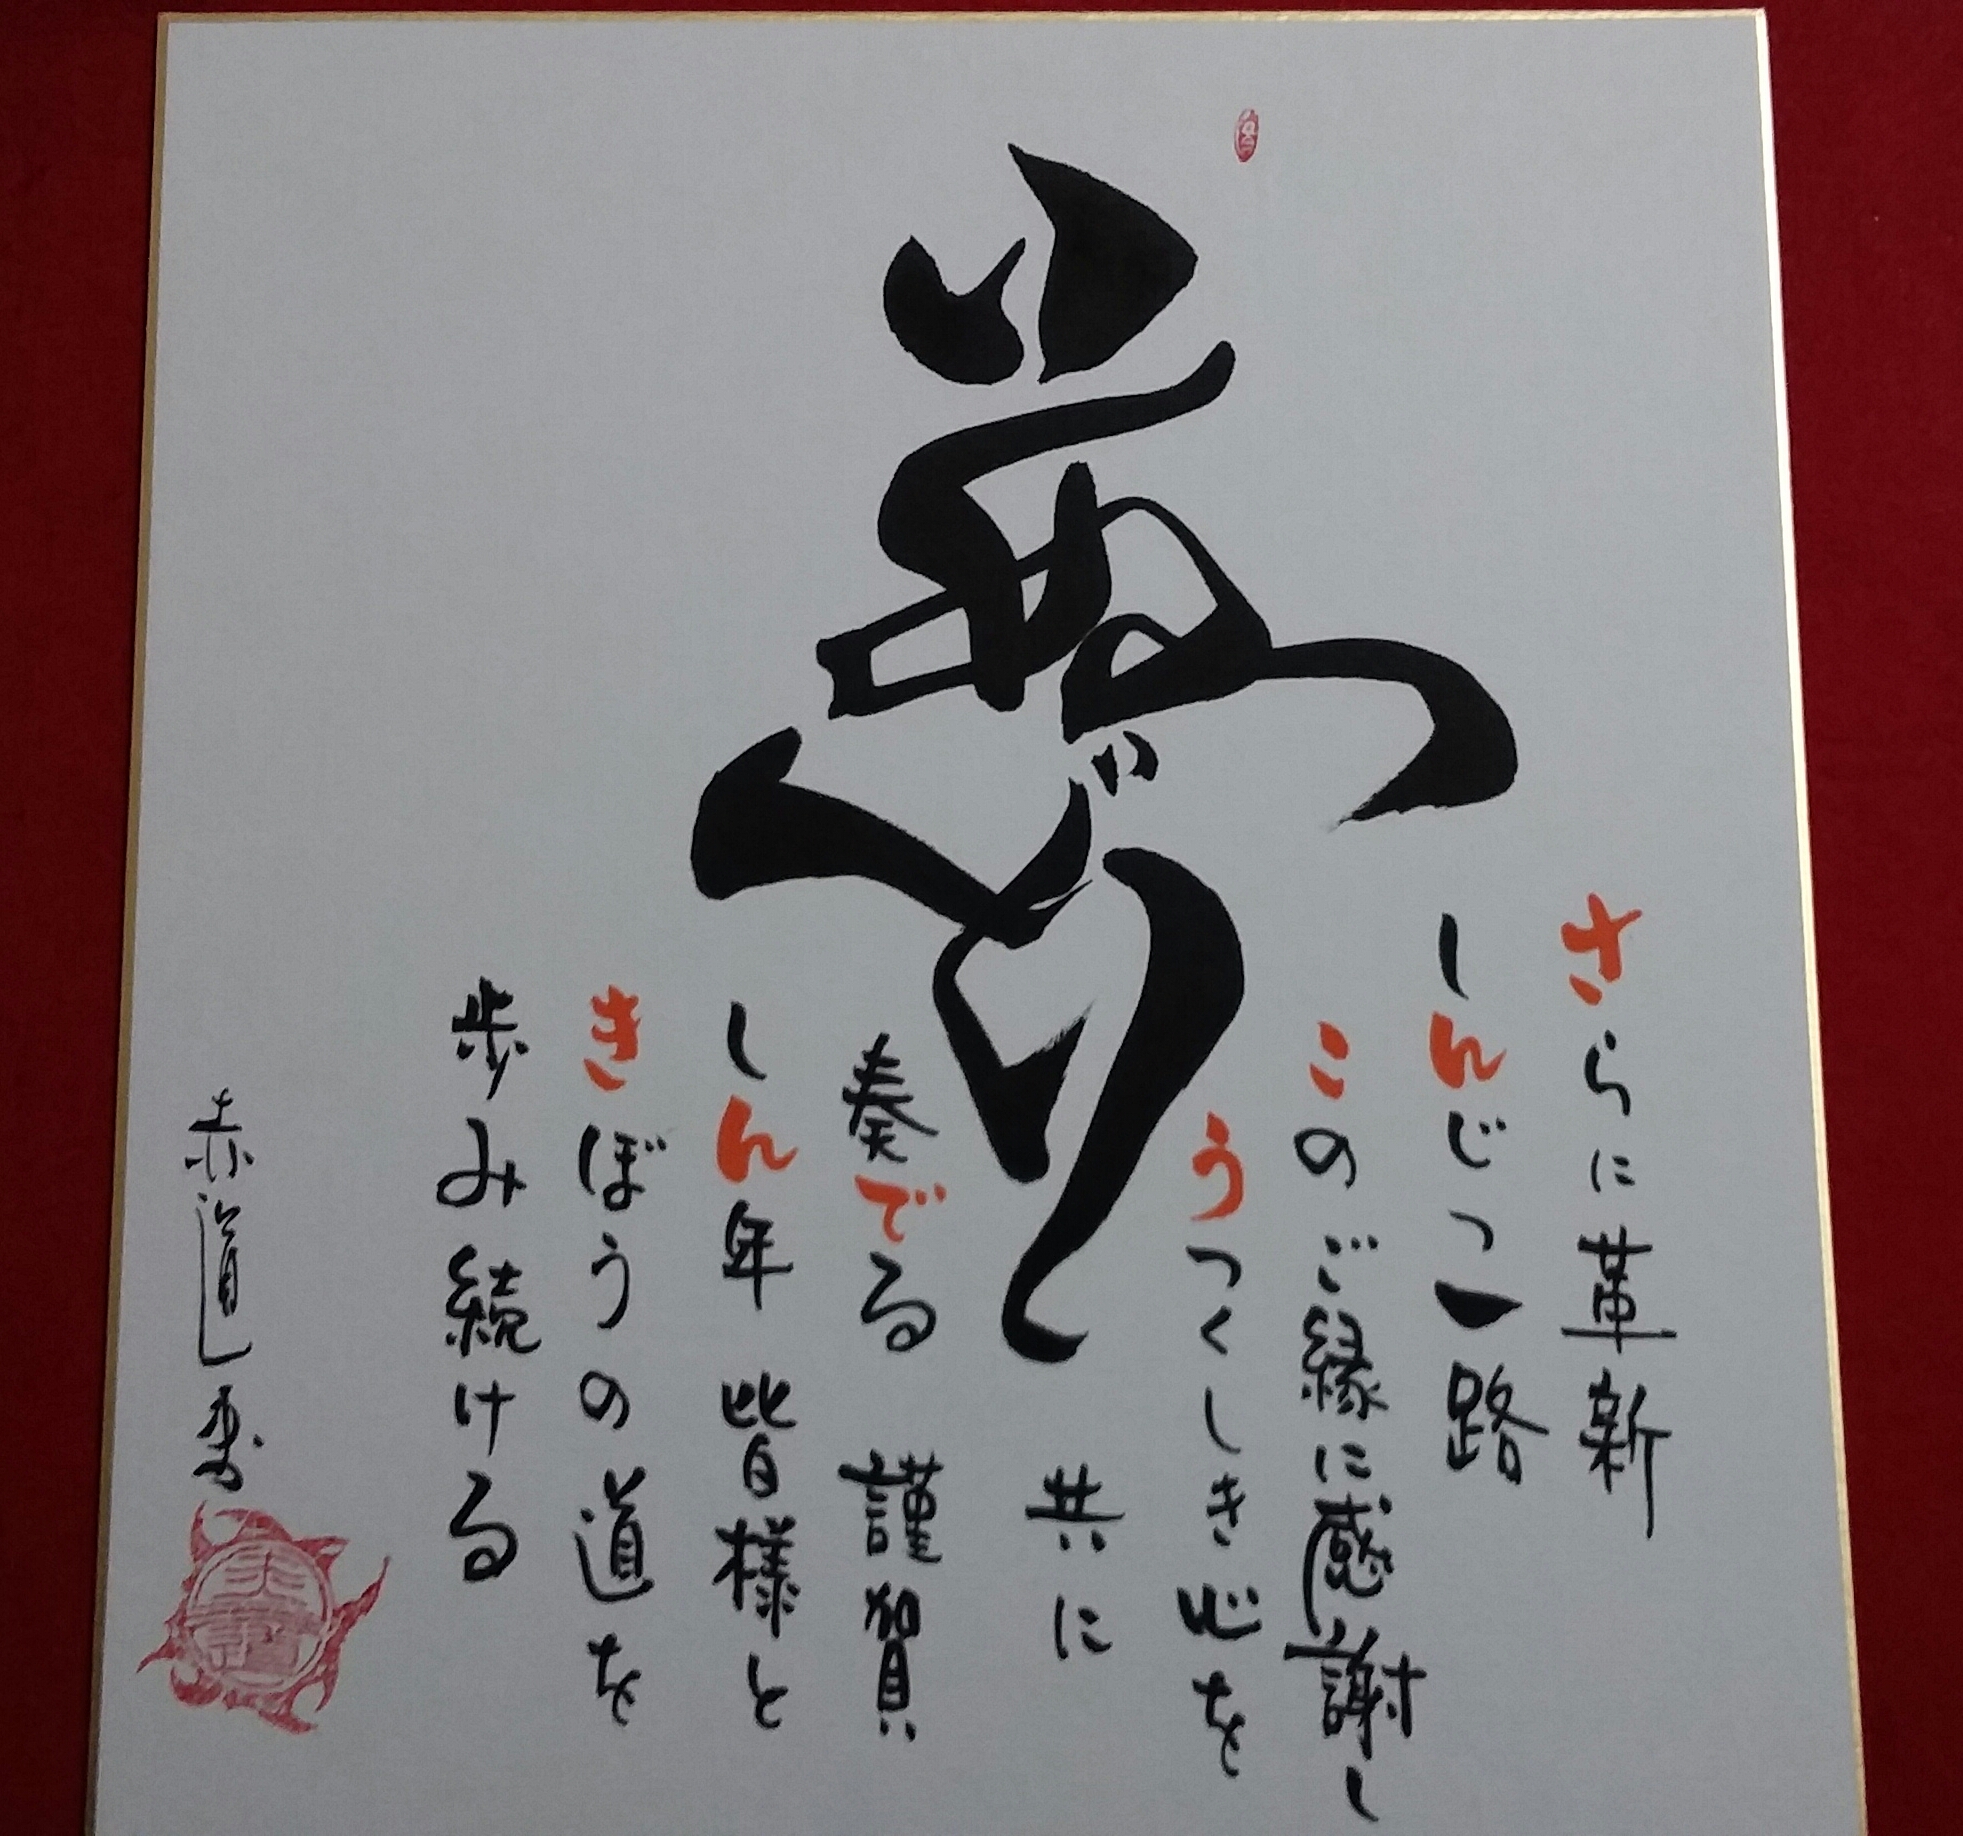 さらに革新
しんじつ一路
このご縁に感謝し
うつくしき心を
共に
奏でる 謹賀
しん年 皆様と
きぼうの道を
歩み続ける
赤道